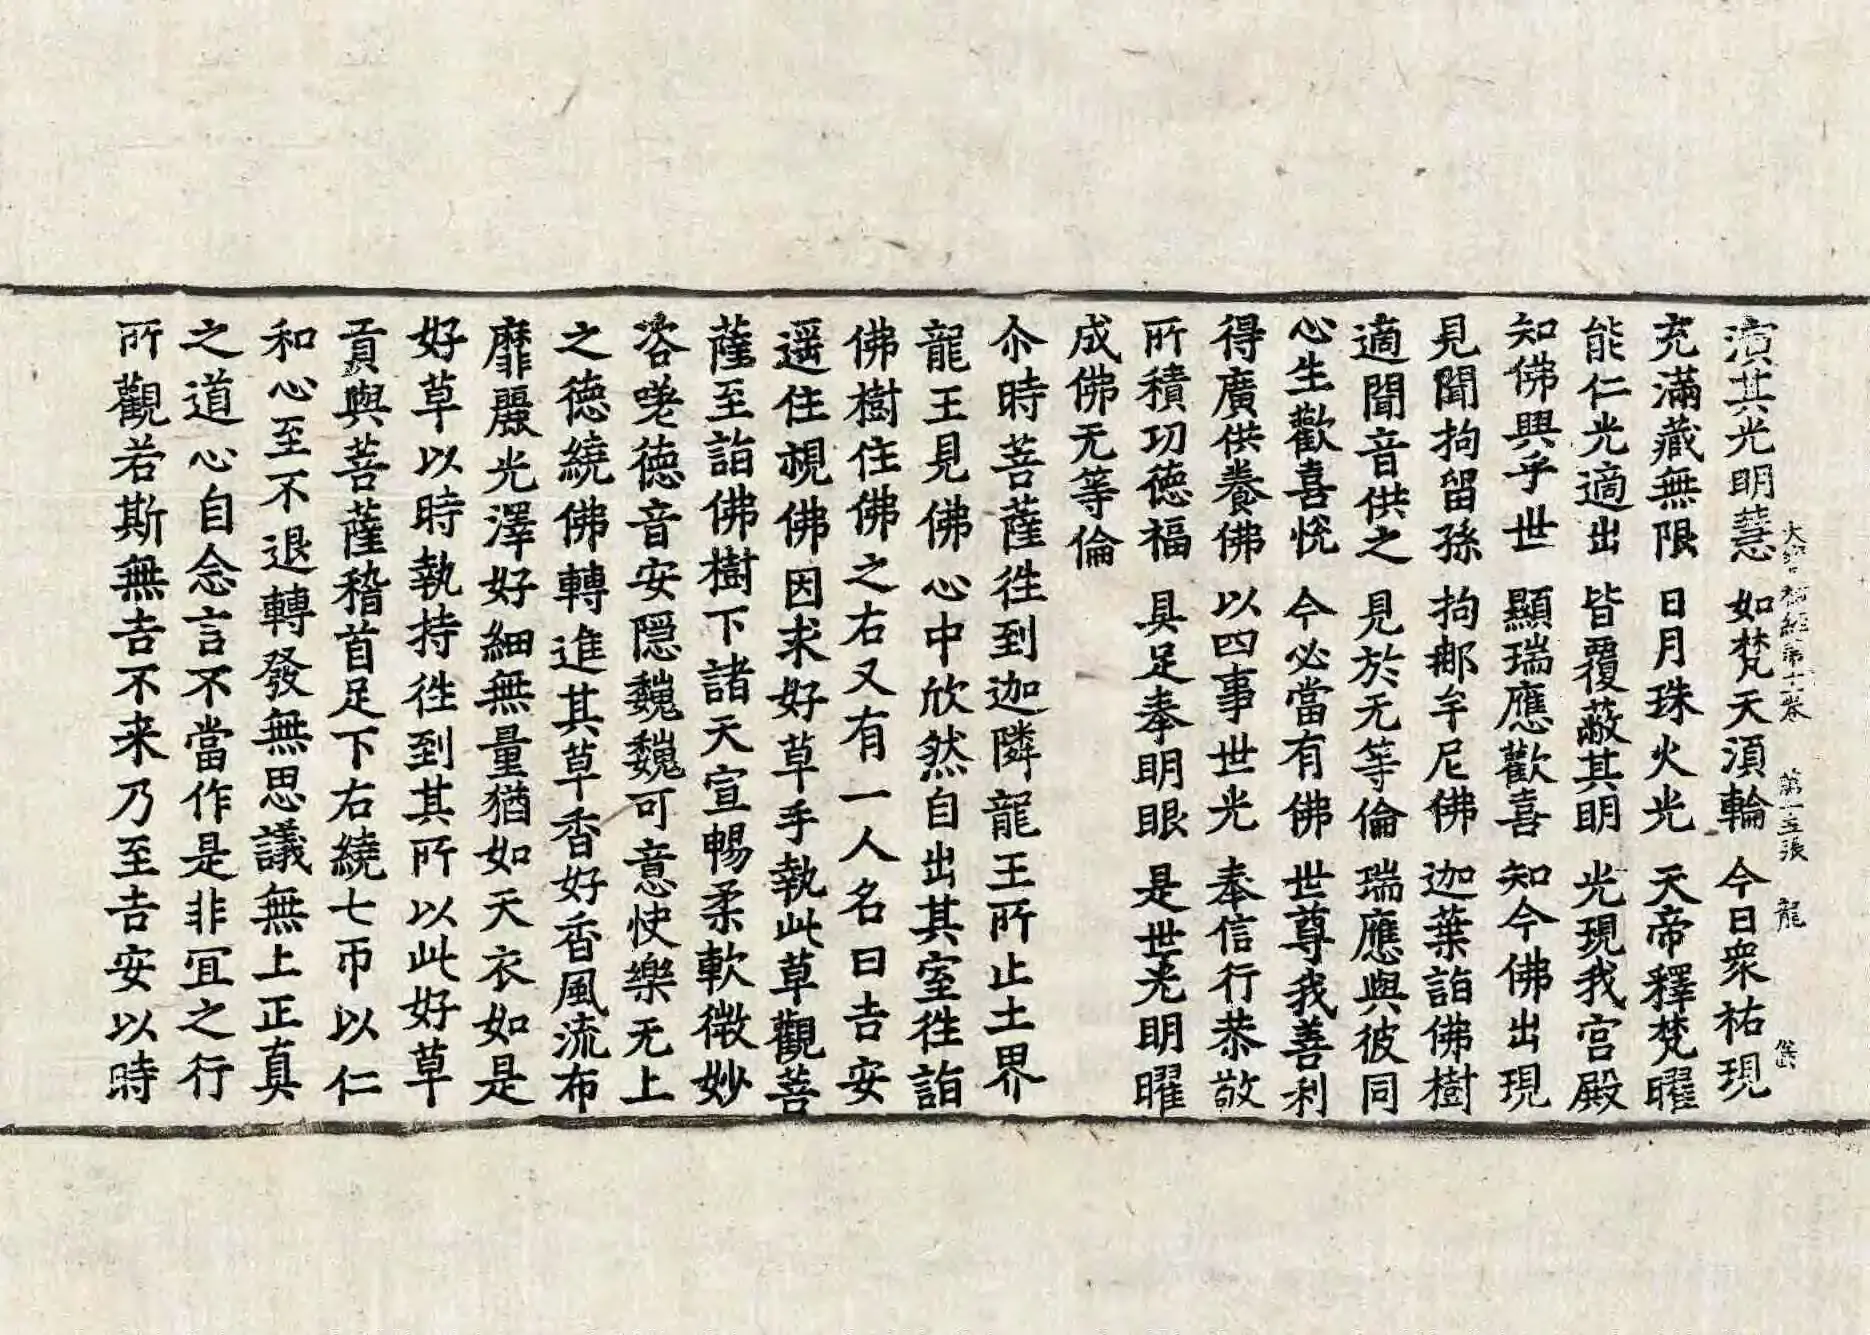 大寶積經第十卷 第一五張 龍
演其光明慧 如梵天須輪 今日眾祐現
充滿藏無限 日月珠火光 天帝釋梵曜
能仁光適出 皆覆蔽其明 光現我宮殿
知佛興乎世 顯瑞應歡喜 知今佛出現
見聞拘留孫 拘那牟尼佛 迦葉詣佛樹
適聞音供之 見於无等倫 瑞應與彼同
心生歡喜恱 今必當有佛 世尊我善利
得廣供養佛 以四事世光 奉信行恭敬
所積功德福 具足奉明眼 是世光明曜
成佛无等倫
尒時菩薩徃到迦隣龍王所止土界
龍王見佛心中欣然自出其室徃詣
佛樹住佛之右又有一人名曰吉安
遥住視佛因求好草手執此草觀菩
薩至詣佛樹下諸天宣暢柔軟微妙
咨嗟德音安隱巍巍可意快樂无上
之德繞佛轉進其草香好香風流布
靡麗光澤好細無量猶如天衣如是
好草以時執持徃到其所以此好草
貢與菩薩稽首足下右繞七帀以仁
和心至不退轉發無思議無上正真
之道心自念言不當作是非冝之行
所觀若斯無吉不来乃至吉安以時